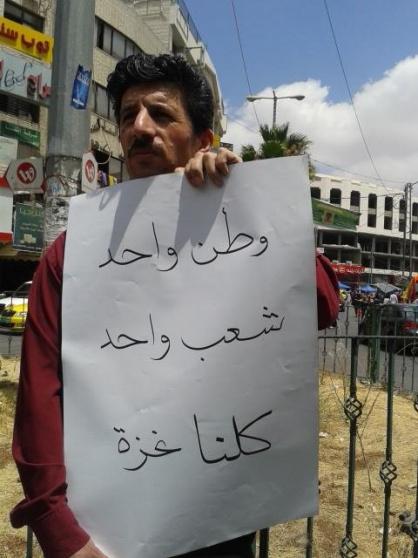 وطن واحد
شعب واحد
كلنا غزة